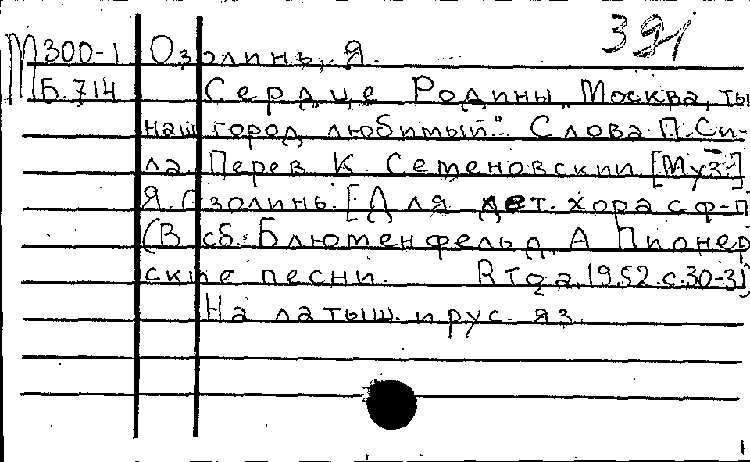 391
М 300-1 Озолинь, Я.
Б.714 Сердце Родины "Москва, ты
наш город любимый". Слова П. Си-
ла. Перев. К. Семеновский [Муз.]
Я. Озолинь. [Для дет. хора с ф-п
(В сб.: Блюменфельд, А. Пионер
ские песни. Rīga, 1952. с.30-31)
На латыш. и рус. яз.